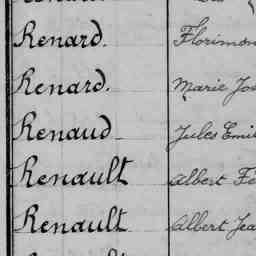 Renard. Florimon
Renard. Marie Jos
Renaud Jules Emil
Renault Albert Fé
Renault Albert Jea